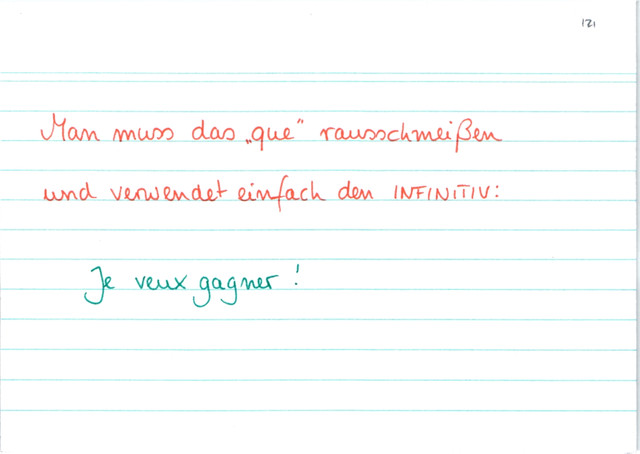 121
Man muss das „que“ rausschmeißen
und verwendet einfach den INFINITIV:
Je veux gagner!